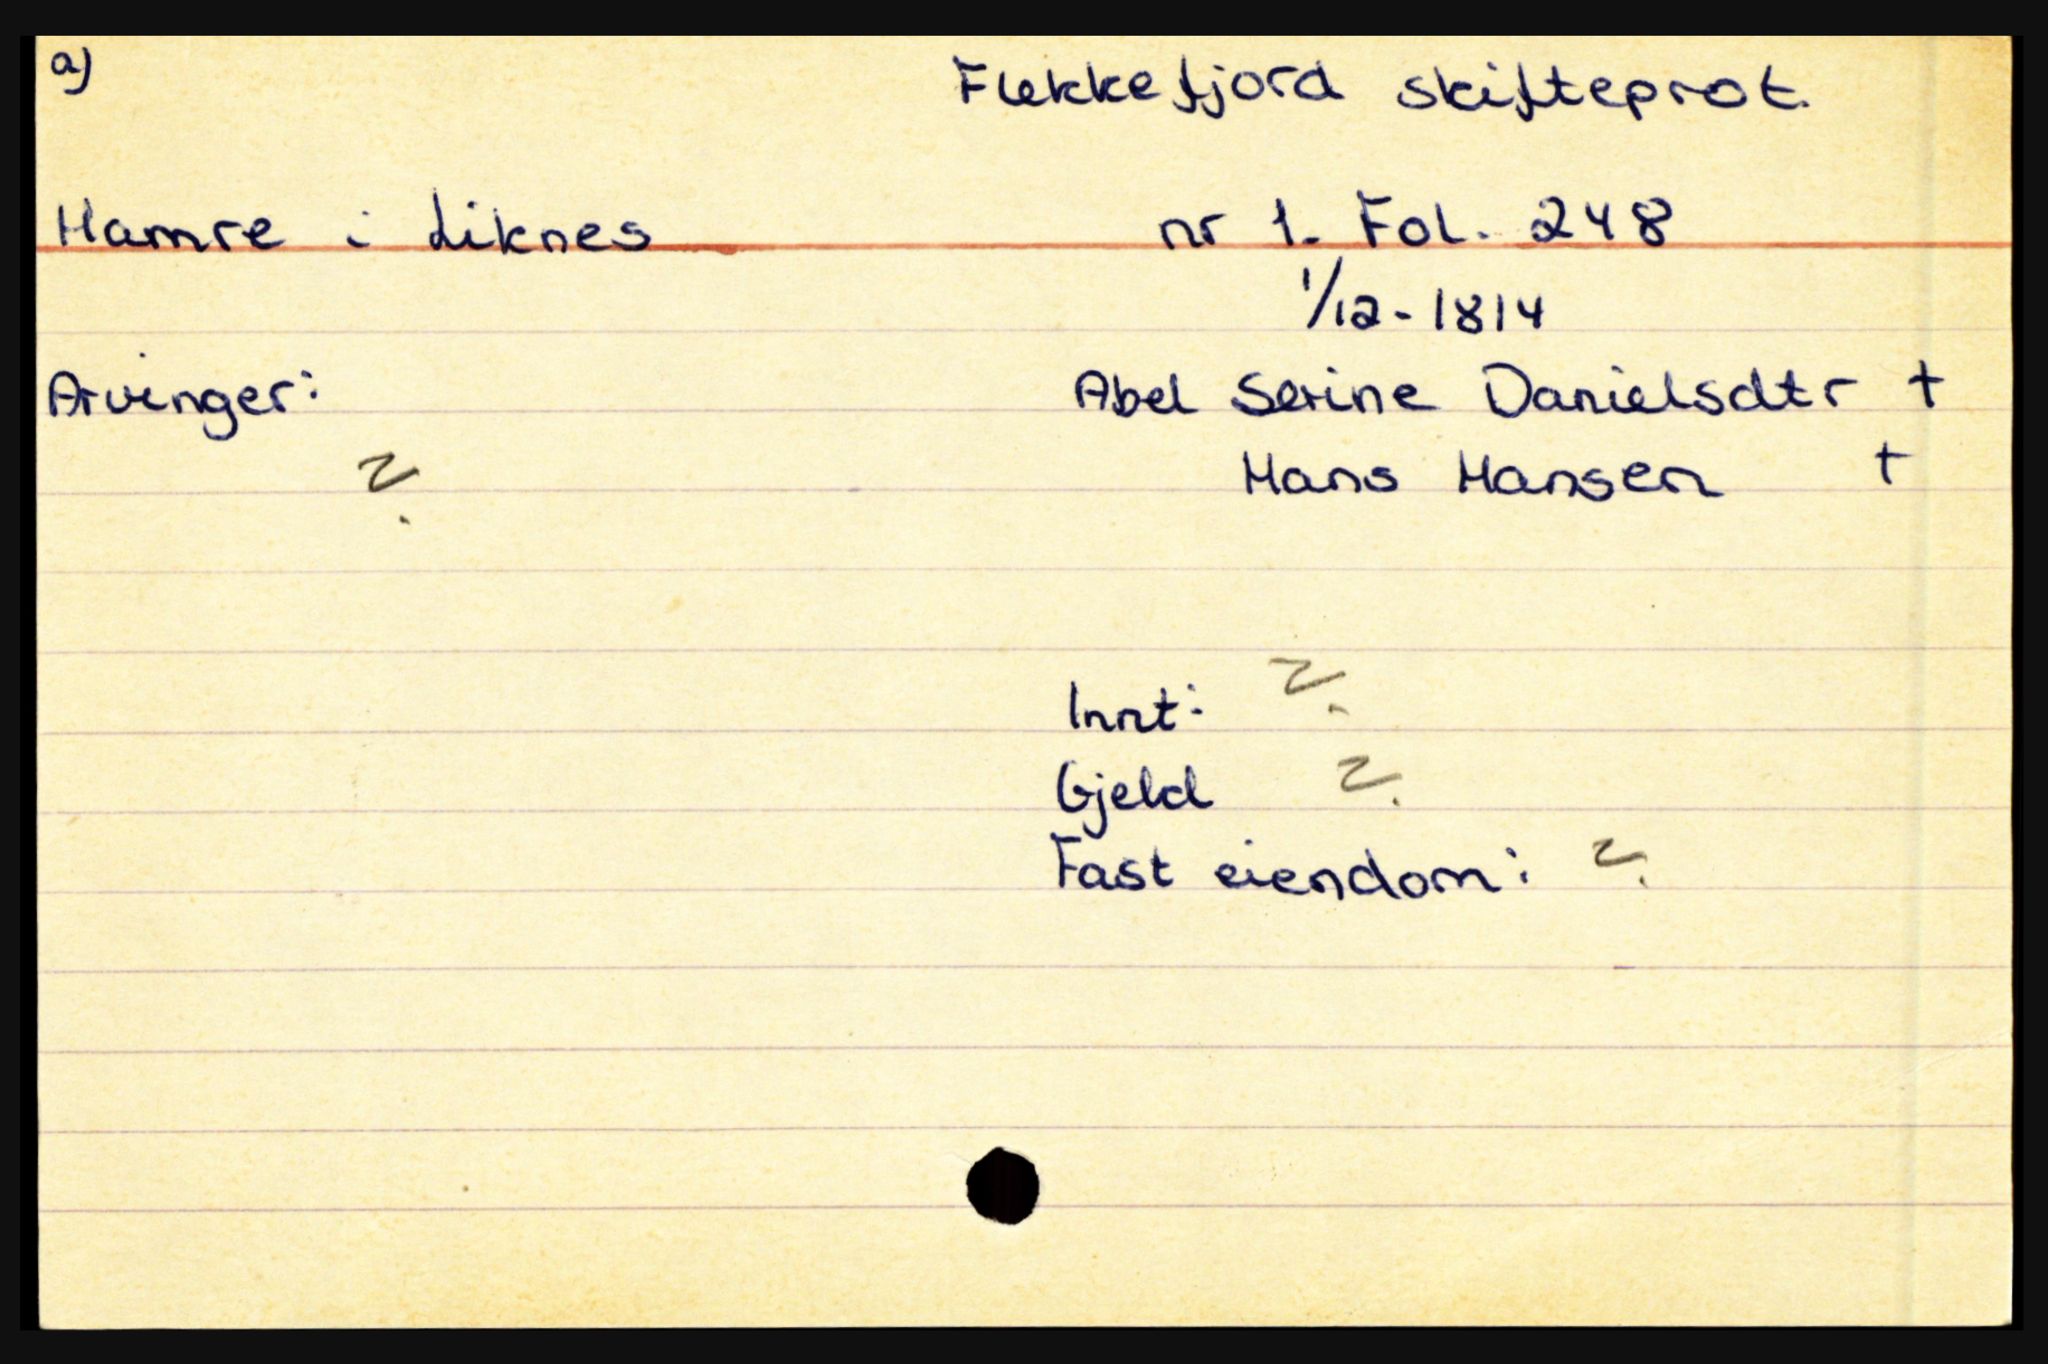 a)
Flekkefjord skifteprot.
Hamre i Liknes nr 1. Fol. 248
1/12-1814
Arvinger: Abel Serine Danielsdtr +
? Hans Hansen +
Innt: ?
Gjeld ?
Fast eiendom: ?